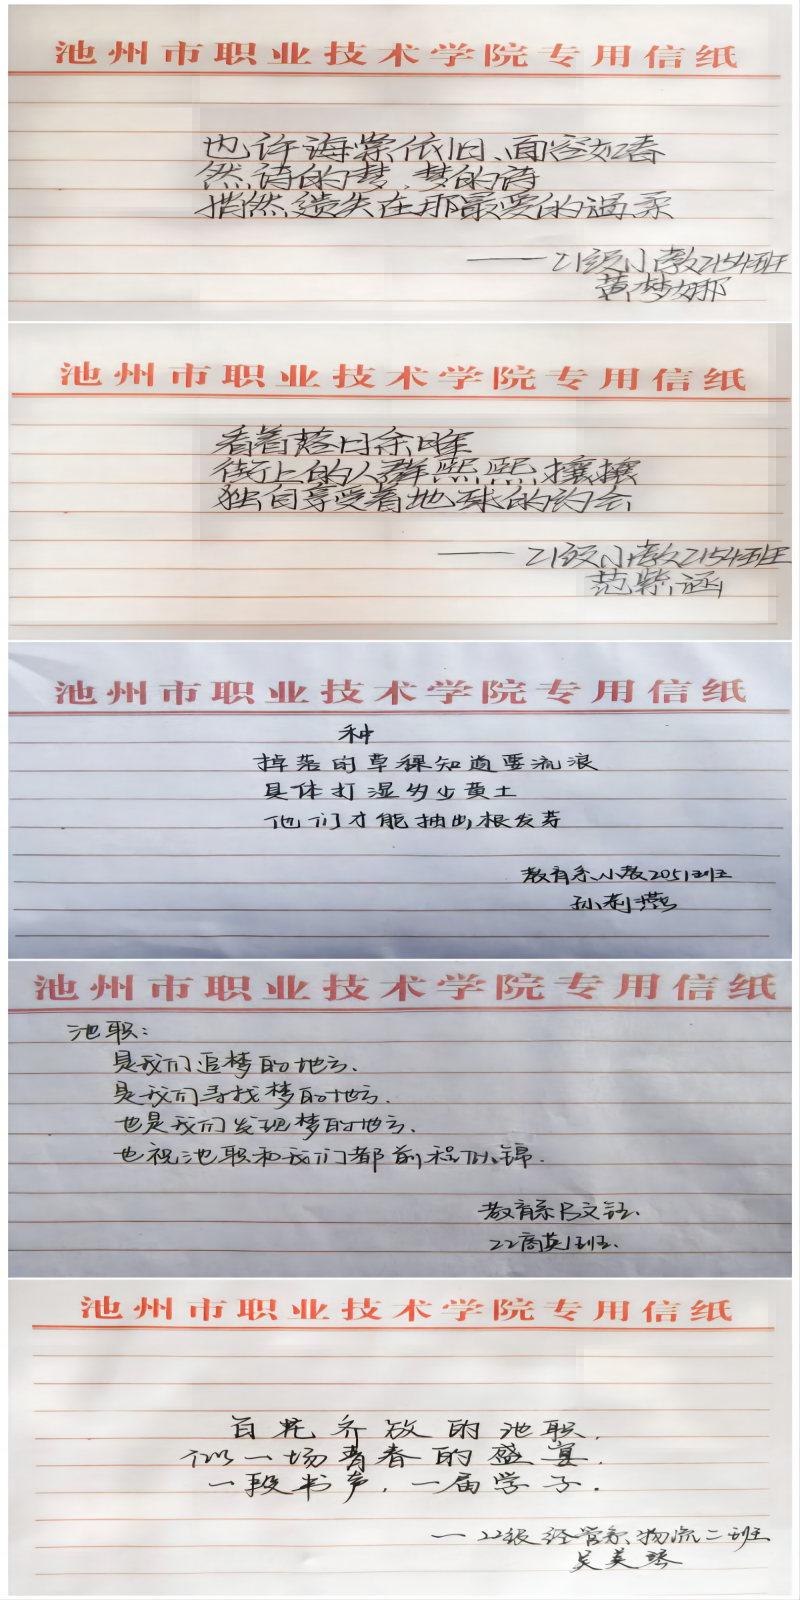 池州市职业技术学院专用信纸
也许海棠依旧、面容如春
然诗的梦、梦的诗
悄然遗失在那最爱的温柔
——21级小教2154班
黄梦娜
池州市职业技术学院专用信纸
看着落日余晖
街上的人群熙熙攘攘
独自享受着地球的约会
——21级小教2154班
范紫涵
池州市职业技术学院专用信纸
种
掉落的草稞知道要流浪
具体打湿多少黄土
他们才能抽出根发芽
教育系小教2051班
孙利燕
池州市职业技术学院专用信纸
池职：
是我们追梦的地方.
是我们寻找梦的地方.
也是我们发现梦的地方.
也祝池职和我们都前程似锦.
教育系吕文钰.
22商英1班.
池州市职业技术学院专用信纸
百花齐放的池职,
似一场青春的盛宴.
一段书声,一届学子.
—22级经管系物流二班
吴美琴